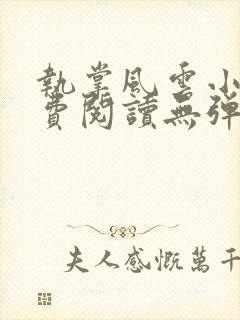 執掌風雲小
費閱讀無彈
夫人感慨萬千